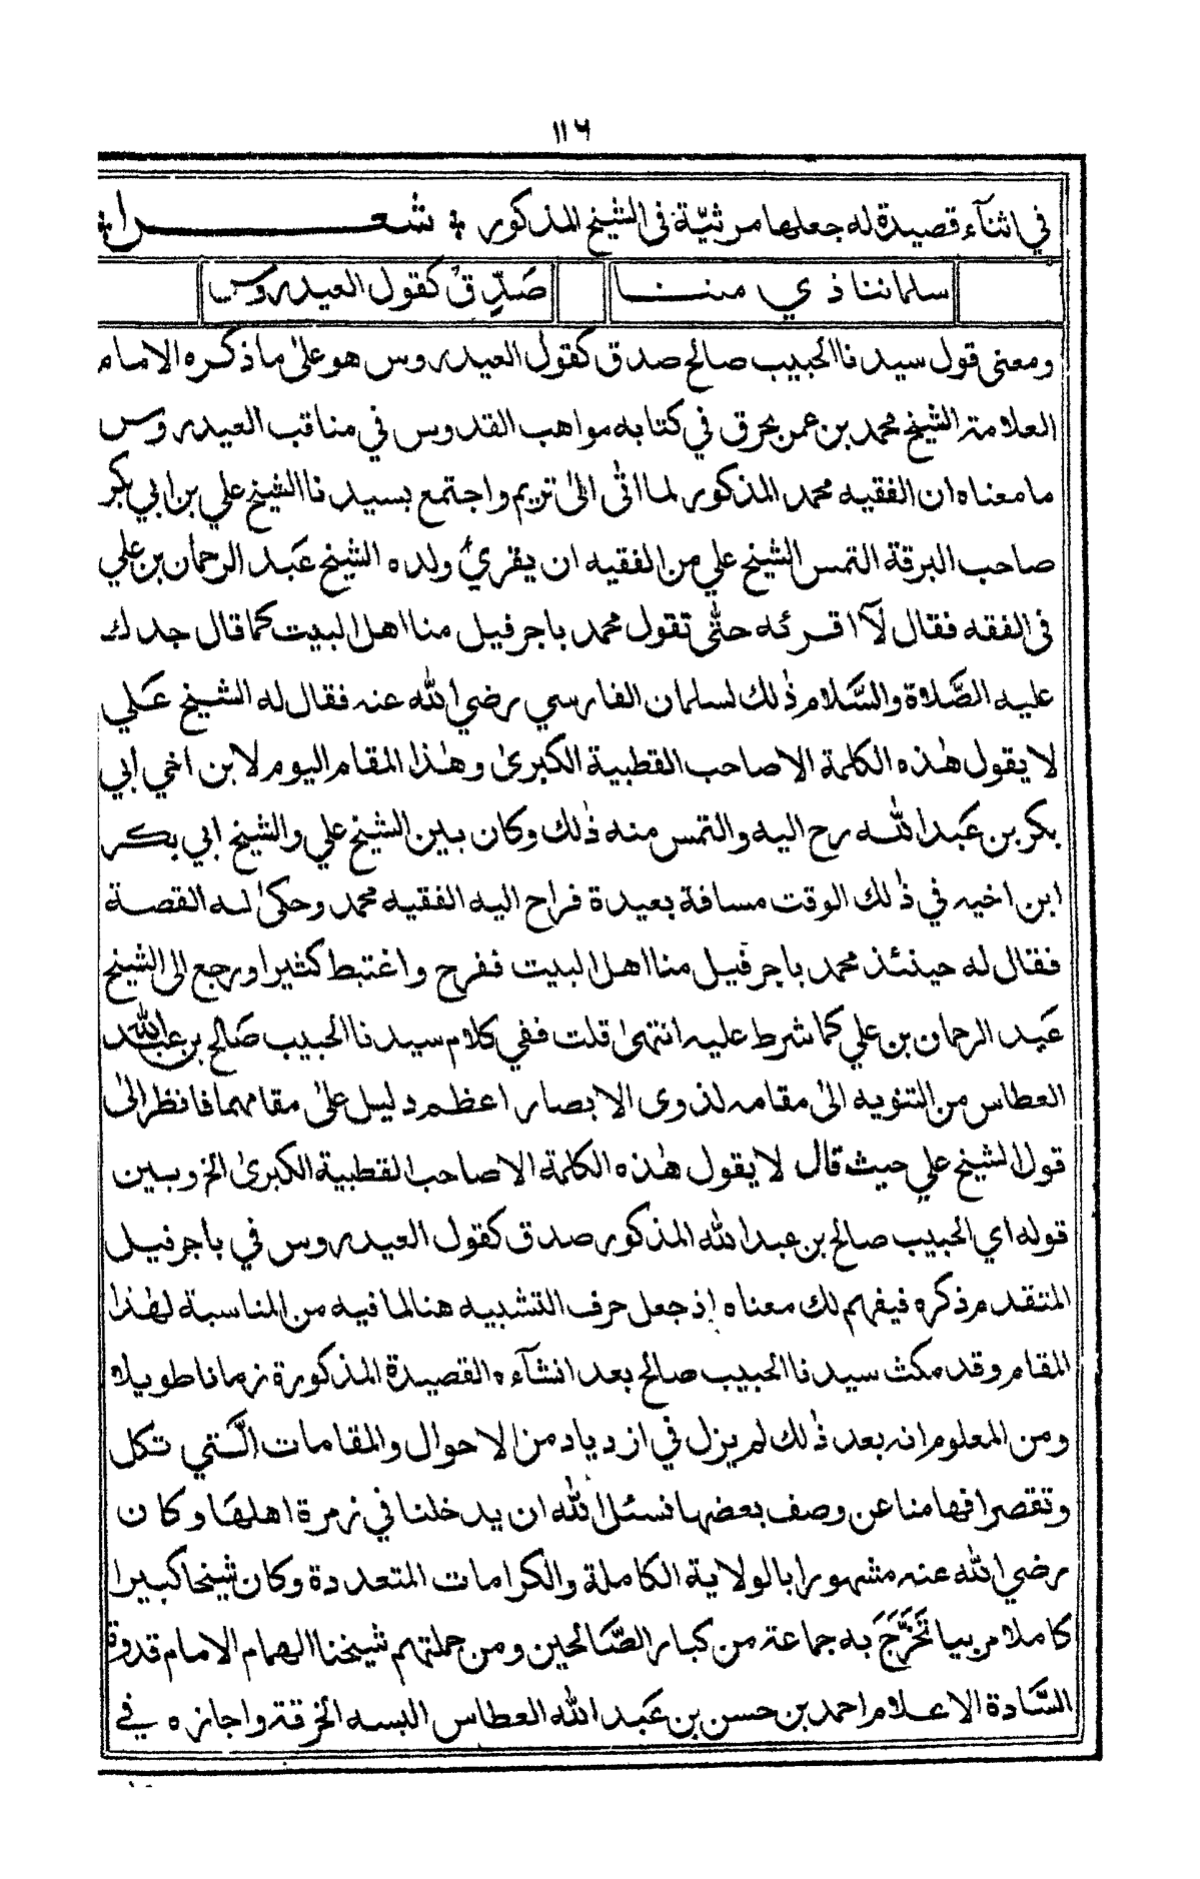 ١١٦
في اثنآء قصيدة له جعلها مرثيّة في الشيخ المذكور * شعرا *
سلماننا ذي مننا صَدِّقْ كقول العيدروس
ومعنى قول سيدنا الحبيب صالح صدق كقول العيدروس هو على ما ذكره الامام
العلامة الشيخ محمد بن عمر بحرق في كتابه مواهب القدوس في مناقب العيدروس
ما معناه ان الفقيه محمد المذكور لما اتى الى تريم واجتمع بسيدنا الشيخ علي بن ابي بكر
صاحب البرقة التمس الشيخ علي من الفقيه ان يقريُ ولده الشيخ عَبد الرحمان بن علي
في الفقه فقال لآ اقرئه حتى تقول محمد باجرفيل منا اهل البيت كما قال جدك
عليه الصَّلاة والسَّلام ذٰلك لسلمان الفارسي رضي الله عنه فقال له الشيخ عَلي
لا يقول هٰذه الكلمة الا صاحب القطبية الكبرىٰ وهٰذا المقام اليوم لابن اخي ابي
بكر بن عَبد الله رح اليه والتمس منه ذٰلك وكان بين الشيخ علي والشيخ ابي بكر
ابن اخيه في ذٰلك الوقت مسافة بعيدة فراح اليه الفقيه محمد وحكىٰ له القصة
فقال له حينئذ محمد باجرفيل منا اهل البيت ففرح واغتبط كثيرا ورجع الى الشيخ
عَبد الرحمان بن علي كما شرط عليه انتهىٰ قلت ففي كلام سيدنا الحبيب صَالح بن عبد الله
العطاس من التنويه الىٰ مقامه لذوى الابصار اعظم دليل علىٰ مقامهما فانظر الىٰ
قول الشيخ علي حيث قال لا يقول هٰذه الكلمة الا صاحب القطبية الكبرىٰ الخ وبين
قوله اي الحبيب صالح بن عبد الله المذكور صدق كقول العيدروس في باجرفيل
المتقدم ذكره فيفهم لك معناه إذ جعل حرف التشبيه هنا لما فيه من المناسبة لهٰذا
المقام وقد مكث سيدنا الحبيب صالح بعد انشآءه القصيدة المذكورة زمانا طويلا
ومن المعلوم انه بعد ذٰلك لم يزل في ازدياد من الاحوال والمقامات الَّتي تكل
وتقصر افهامنا عن وصف بعضها نسئل الله ان يدخلنا في زمرة اهلهَا وكان
رضي الله عنه مشهورا بالولاية الكاملة والكرامات المتعددة وكان شيخا كبيرا
كاملا مربيا تَخَرَّجَ به جماعة من كبار الصَّالحين ومن جملتهم شيخنا الهمام الامام قدوة
السَّادة الاعلام احمد بن حسن بن عَبد الله العطاس البسه الخرقة واجازه في